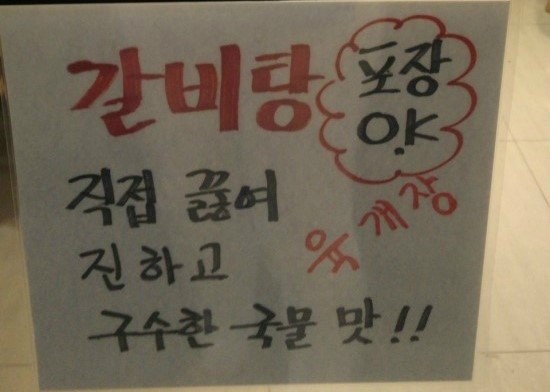 갈비탕
포장
O.K
직접 끓여
육개장
진하고
구수한 국물 맛!!